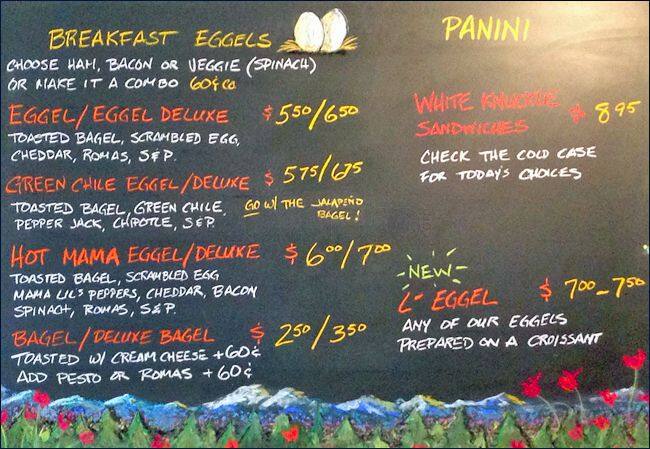 BREAKFAST EGGELS
CHOOSE HAM, BACON OR VEGGIE (SPINACH)
OR MAKE IT A COMBO 60¢ea.
EGGEL/EGGEL DELUXE $5.50/6.50
TOASTED BAGEL, SCRAMBLED EGG,
CHEDDAR, ROMAS, S&P.
GREEN CHILE EGGEL/DELUXE $5.75/6.75
TOASTED BAGEL, GREEN CHILE,
PEPPER JACK, CHIPOTLE, S&P.
GO W/ THE JALAPEÑO
BAGEL!
HOT MAMA EGGEL/DELUXE $6.00/7.00
TOASTED BAGEL, SCRAMBLED EGG
MAMA LIL'S PEPPERS, CHEDDAR, BACON
SPINACH, ROMAS, S&P.
BAGEL/DELUXE BAGEL $2.50/3.50
TOASTED W/ CREAM CHEESE +60¢
ADD PESTO OR ROMAS +60¢
PANINI
WHITE KNUCKLE
SANDWICHES $8.95
CHECK THE COLD CASE
FOR TODAY'S CHOICES
-NEW-
L'-EGGEL $7.00-7.50
ANY OF OUR EGGELS
PREPARED ON A CROISSANT